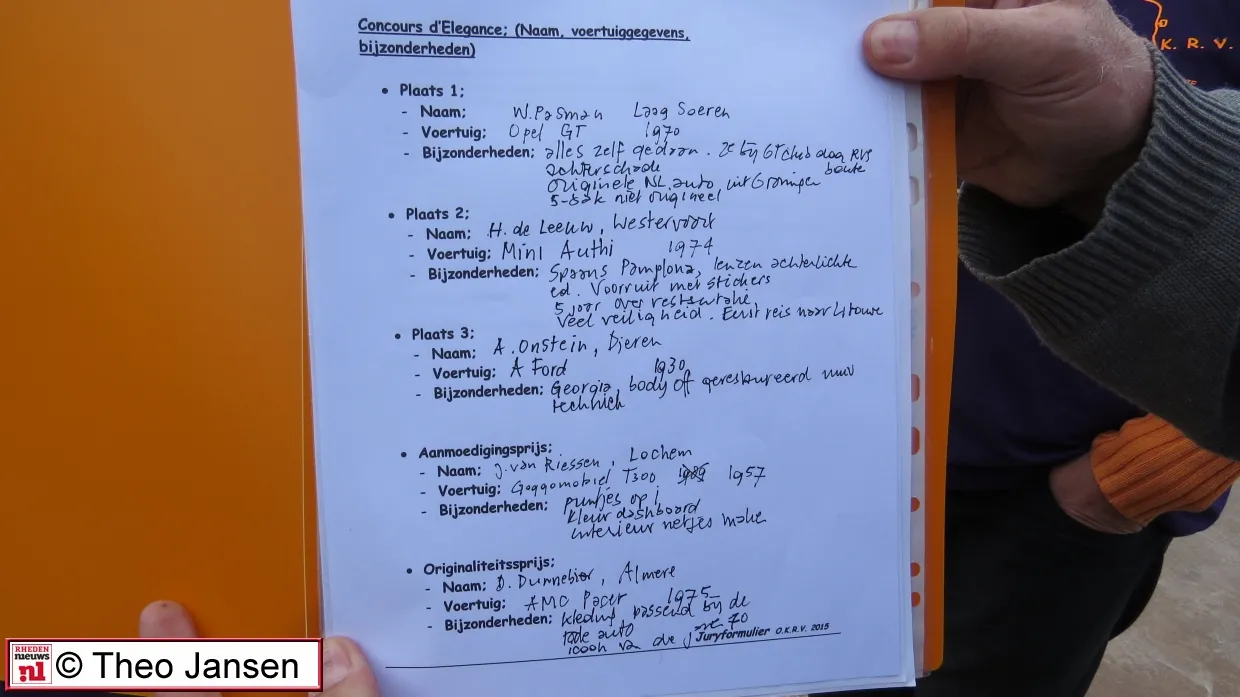 Concours d'Elegance; (Naam, voertuiggegevens,
bijzonderheden)
• Plaats 1;
- Naam; W. Pasman Laag Soeren
- Voertuig; Opel GT 1970
- Bijzonderheden; alles zelf gedaan. 2e bij GT club dag RVS
achterschade boute
originele NL auto, uit Groningen
5-bak niet origineel
• Plaats 2;
- Naam; H. de Leeuw, Westervoort
- Voertuig; Mini Authi 1974
- Bijzonderheden; Spaans Pamplona, lenzen achterlichte
ed. Voorruit met stickers
5 jaar over restauratie,
Veel veiligheid. Eerst reis naar Litouwe
• Plaats 3;
- Naam; A. Onstein, Dieren
- Voertuig; A Ford 1930
- Bijzonderheden; Georgia, body off gerestaureerd
techniek
• Aanmoedigingsprijs;
- Naam; J. van Riessen, Lochem
- Voertuig; Goggomobiel T300 1957
- Bijzonderheden; puntjes op i
kleur dashboard
interieur netjes make
• Originaliteitssprijs;
- Naam; D. Dunnebier, Almere
- Voertuig; AMC Pacer 1975
- Bijzonderheden; kleding passend bij de
auto 70
icoon van de j
Juryformulier O.K.R.V. 2015
K. R. V.
RHEDEN
nieuws
.nl
© Theo Jansen